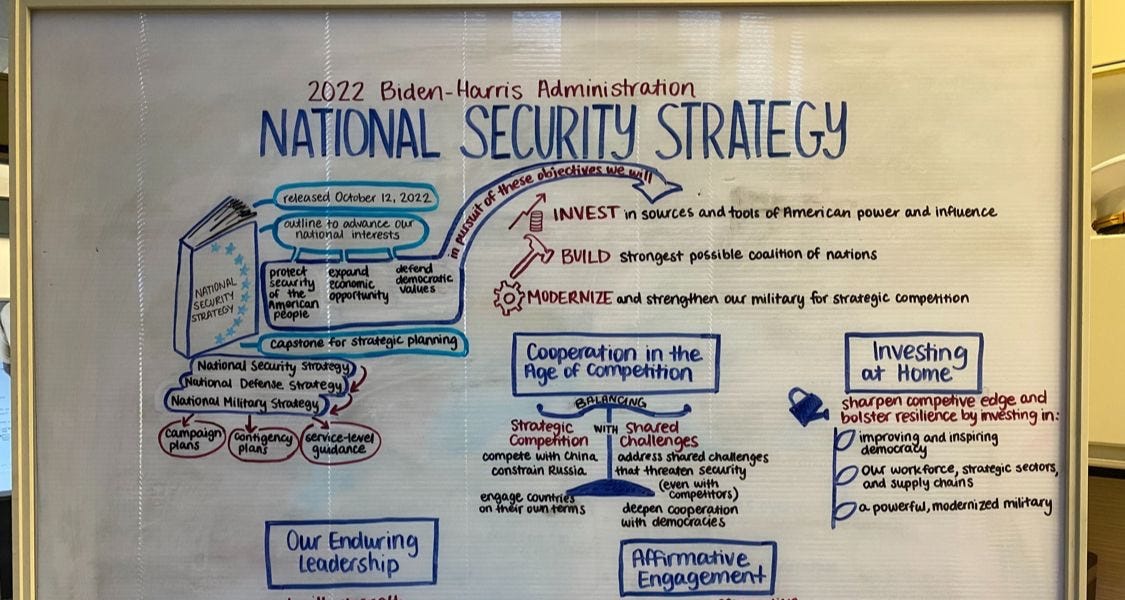 2022 Biden-Harris Administration
NATIONAL SECURITY STRATEGY
released October 12, 2022
outline to advance our
national interests
protect
security
of the
American
people
expand
economic
opportunity
defend
democratic
values
in pursuit of these objectives we will
NATIONAL
SECURITY
STRATEGY
capstone for strategic planning
National Security Strategy
National Defense Strategy
National Military Strategy
campaign
plans
contigency
plans
service-level
guidance
INVEST in sources and tools of American power and influence
BUILD strongest possible coalition of nations
MODERNIZE and strengthen our military for strategic competition
Cooperation in the
Age of Competition
BALANCING
Strategic
Competition
WITH
Shared
challenges
compete with China
constrain Russia
engage countries
on their own terms
address shared challenges
that threaten security
(even with
competitors)
deepen cooperation
with democracies
Investing
at Home
sharpen competive edge and
bolster resilience by investing in:
improving and inspiring
democracy
our workforce, strategic sectors,
and supply chains
a powerful, modernized military
Our Enduring
Leadership
Affirmative
Engagement